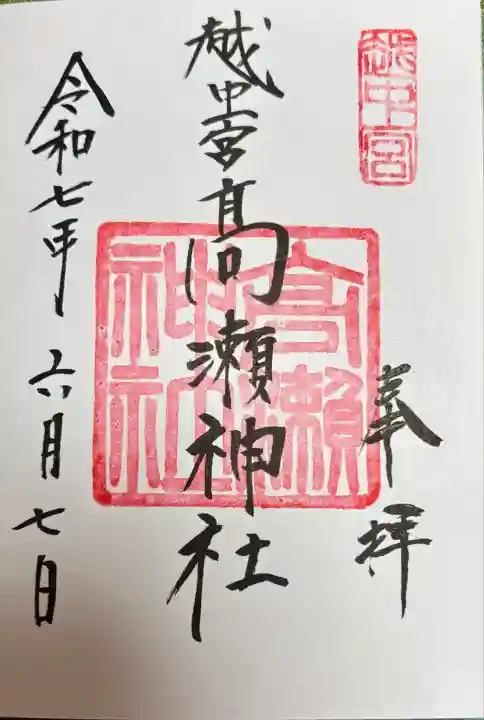 越中宮
奉拝
越中一宮髙瀬神社
高瀬
神社
令和七年 六月七日